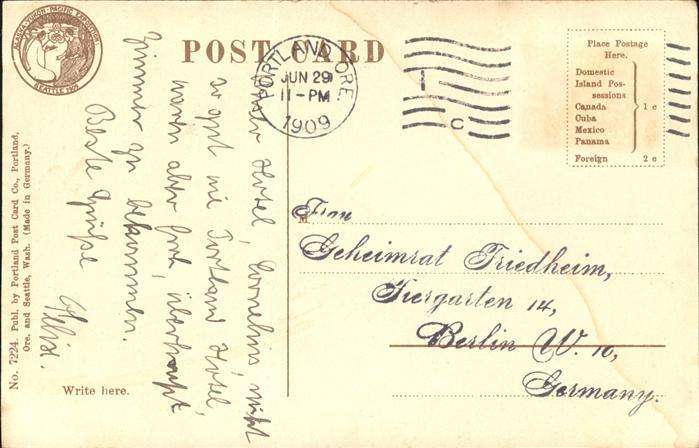 ALASKA-YUKON-PACIFIC EXPOSITION
SEATTLE 1909
POST CARD
PORTLAND, ORE.
JUN 29
11-PM
1909
1
C
Place Postage
Here.
Domestic
Island Pos-
sessions
Canada
Cuba
Mexico
Panama
1 c
Foreign 2 c
Hotel, Cornelius, nicht
so gut wie Portland Hotel,
waren aber froh, überhaupt
Zimmer zu bekommen.
Beste Grüße
M
Frau
Geheimrat Friedheim,
Tiergarten 14,
Berlin W. 10,
Germany.
Write here.
No. 7224. Publ. by Portland Post Card Co., Portland,
Ore. and Seattle, Wash. (Made in Germany.)